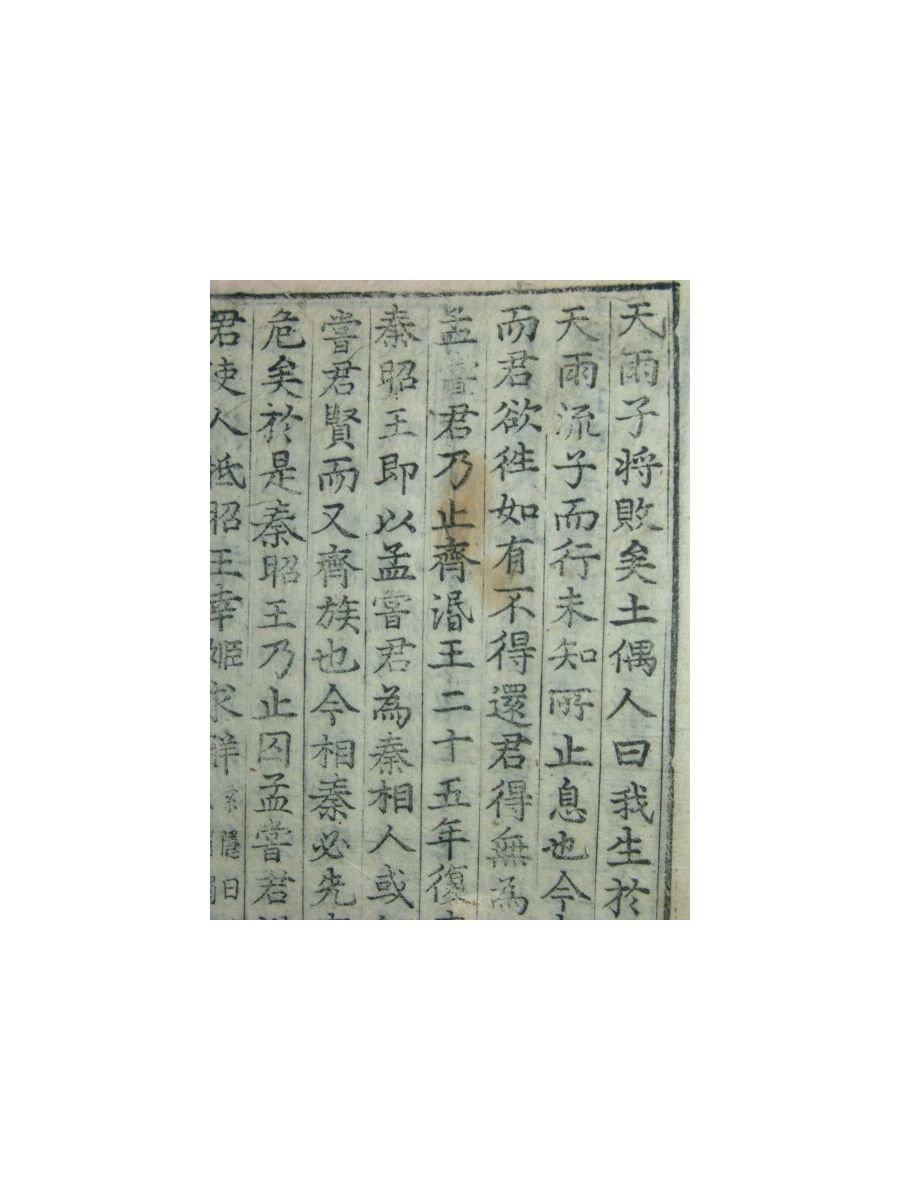 天雨子将敗矣土偶人曰我生於
天雨流子而行未知所止息也今
而君欲徃如有不得還君得無為
孟嘗君乃止齊湣王二十五年復
秦昭王即以孟嘗君為秦相人或
嘗君賢而又齊族也今相秦必先
危矣於是秦昭王乃止囚孟嘗君
君使人抵昭王幸姬求觧索隱曰